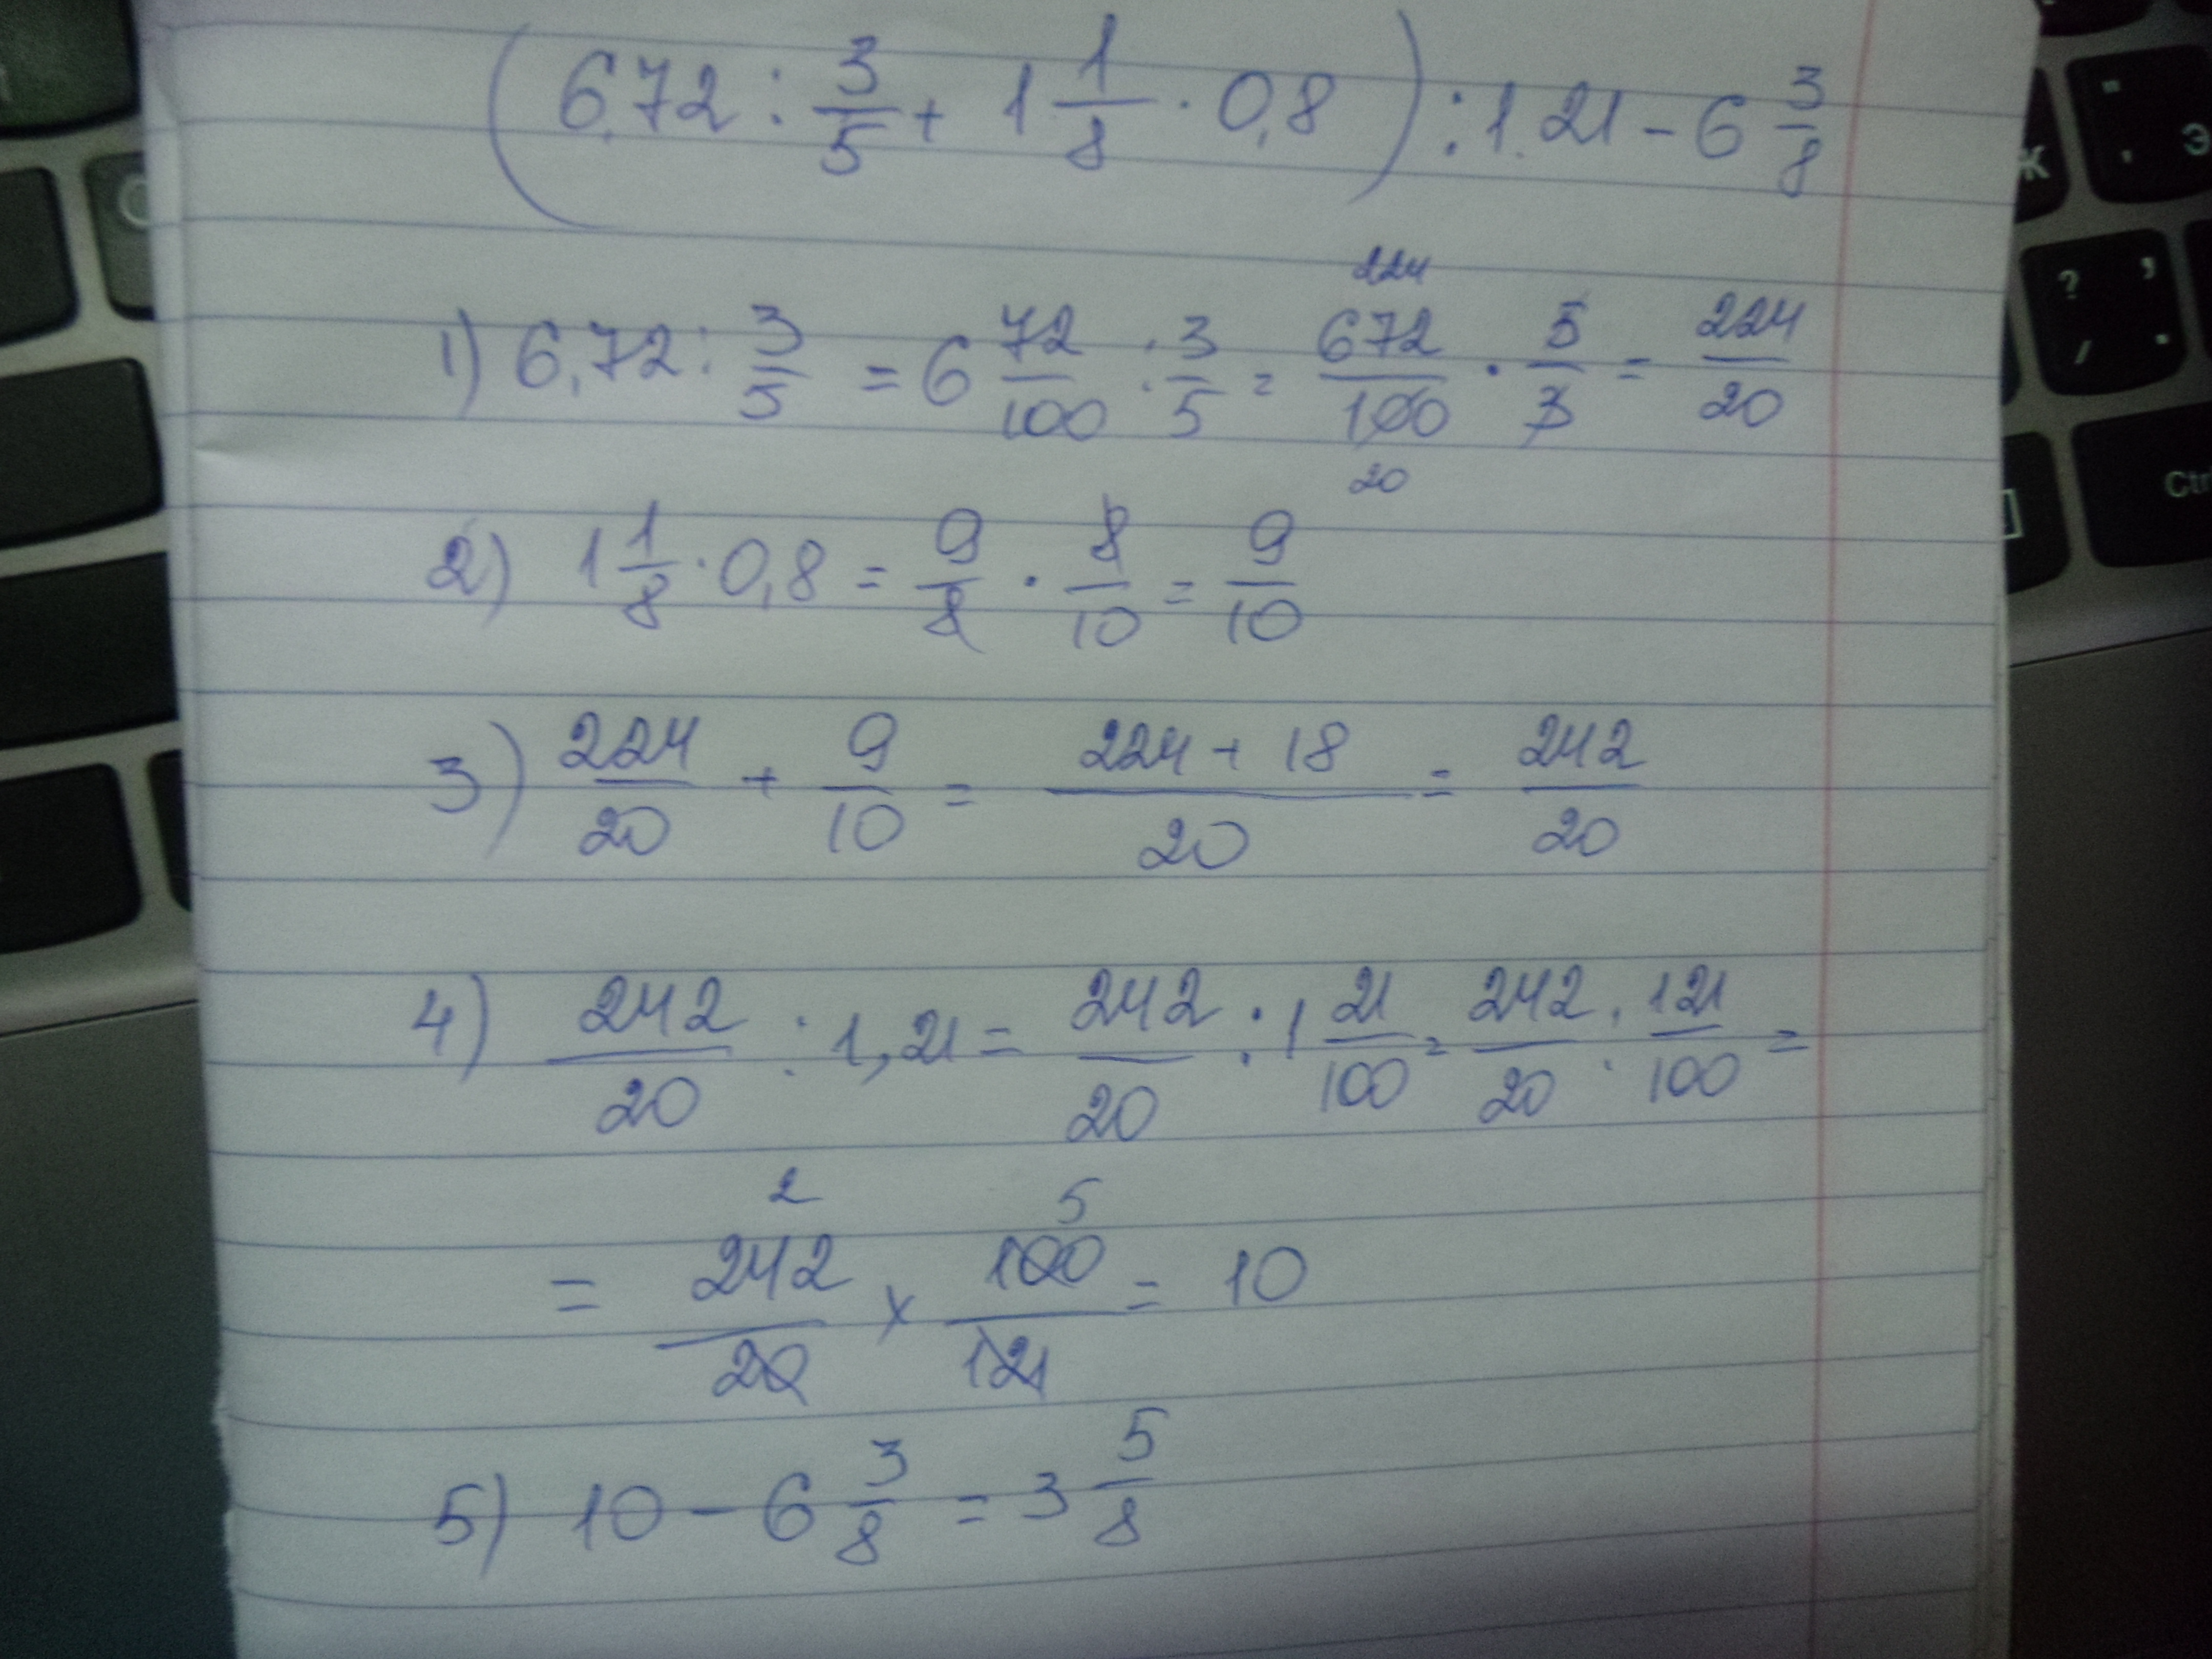 (6,72 : 3/5 + 1 1/8 · 0,8) : 1,21 - 6 3/8
1) 6,72 : 3/5 = 6 72/100 : 3/5 = 672/100 · 5/3 = 224/20
224
20
2) 1 1/8 · 0,8 = 9/8 · 8/10 = 9/10
3) 224/20 + 9/10 = 224 + 18/20 = 242/20
4) 242/20 : 1,21 = 242/20 : 1 21/100 = 242/20 : 121/100 =
2 5
= 242/20 × 100/121 = 10
5) 10 - 6 3/8 = 3 5/8
К
"
'
Э
?
,
/
.
Ctr